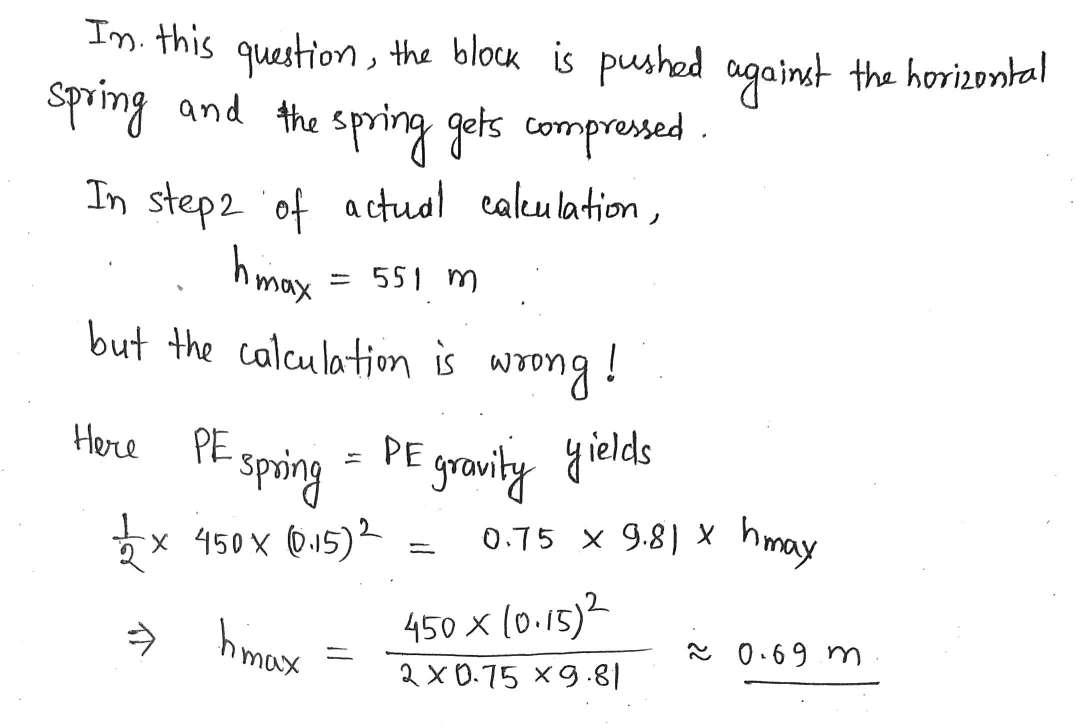 In. this question, the block is pushed against the horizontal
spring and the spring gets compressed.
In step2 of actual calculation,
hmax = 551 m
but the calculation is wrong!
Here PE spring = PE gravity yields
1/2 × 450 × (0.15)² = 0.75 × 9.81 × hmax
⇒ hmax = 450 × (0.15)² / 2 × 0.75 × 9.81 ≈ 0.69 m